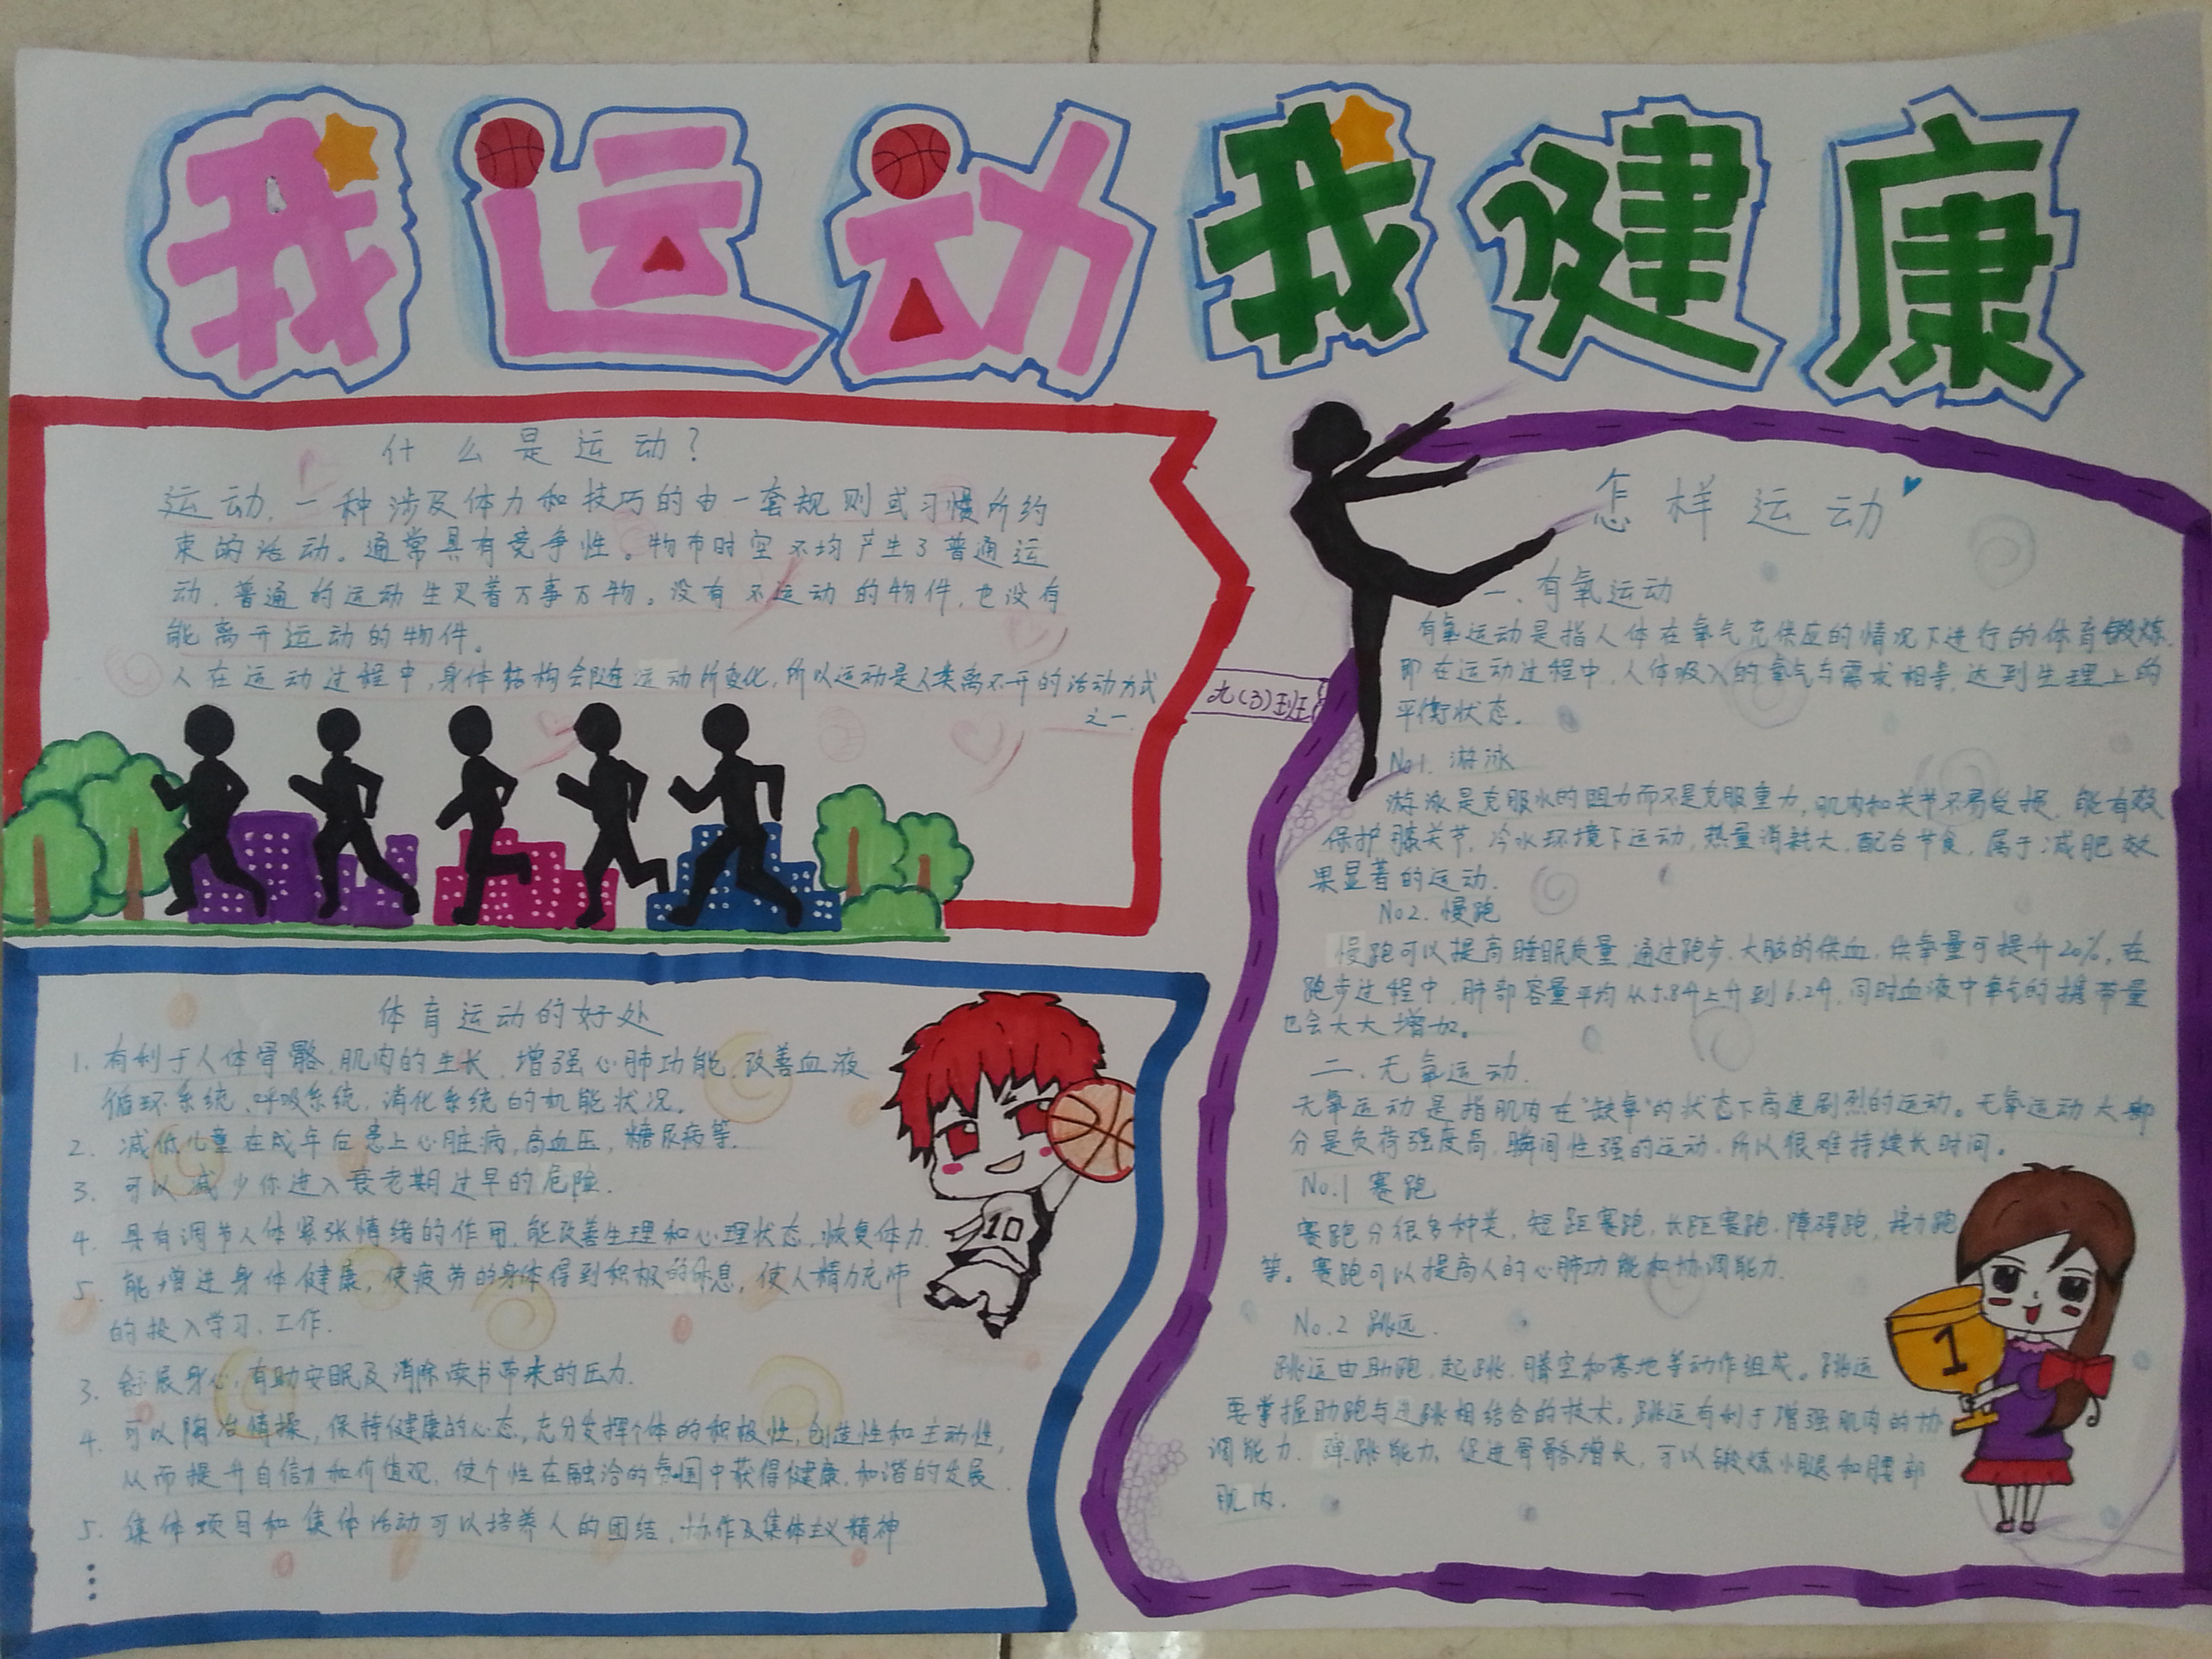 我运动我健康
什么是运动？
运动，一种涉及体力和技巧的由一套规则或习惯所约
束的活动。通常具有竞争性。物布时空不均产生了普通运
动，普通的运动生灭着万事万物。没有不运动的物件，也没有
能离开运动的物件。
人在运动过程中，身体结构会随运动所变化，所以运动是人类离不开的活动方式
之一
九(3)班
体育运动的好处
1. 有利于人体骨骼、肌肉的生长，增强心肺功能，改善血液
循环系统、呼吸系统，消化系统的机能状况。
2. 减低儿童在成年后患上心脏病，高血压，糖尿病等.
3. 可以减少你进入衰老期过早的危险.
4. 具有调节人体紧张情绪的作用，能改善生理和心理状态，恢复体力.
5. 能增进身体健康，使疲劳的身体得到积极的休息，使人精力充沛
的投入学习、工作.
3. 舒展身心，有助安眠及消除读书带来的压力.
4. 可以陶冶情操，保持健康的心态，充分发挥个体的积极性，创造性和主动性，
从而提升自信力和价值观，使个性在融洽的氛围中获得健康、和谐的发展.
5. 集体项目和集体活动可以培养人的团结、协作及集体主义精神
10
怎样运动
一、有氧运动
有氧运动是指人体在氧气充供应的情况下进行的体育锻炼.
即在运动过程中，人体吸入的氧气与需求相等，达到生理上的
平衡状态。
No1. 游泳
游泳是克服水的阻力而不是克服重力，肌肉和关节不易受损，能有效
保护膝关节，冷水环境下运动，热量消耗大，配合节食，属于减肥效
果显著的运动.
No2. 慢跑
慢跑可以提高睡眠质量，通过跑步，大脑的供血，供氧量可提升20%，在
跑步过程中，肺部容量平均从5.8升上升到6.2升，同时血液中氧气的携带量
也会大大增加。
二、无氧运动.
无氧运动是指肌肉在“缺氧”的状态下高速剧烈的运动。无氧运动大部
分是负荷强度高、瞬间性强的运动，所以很难持续长时间。
No.1 赛跑
赛跑分很多种类，短距赛跑，长距赛跑，障碍跑，接力跑
等。赛跑可以提高人的心肺功能和协调能力.
No.2 跳远.
跳远由助跑，起跳，腾空和落地等动作组成。跳远
要掌握助跑与起跳相结合的技术。跳远有利于增强肌肉的协
调能力、弹跳能力，促进骨骼增长，可以锻炼小腿和腰部
肌肉.
1